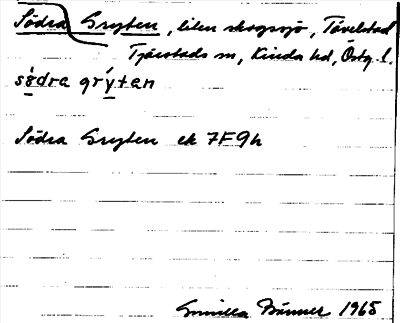 Södra Gryten, liten skogssjö, Tåvelstad
Tjärstads sn, Kinda hd, Östg. l.
södra grýtan
Södra Gryten ek 7F9h
Gunilla Bänner 1965